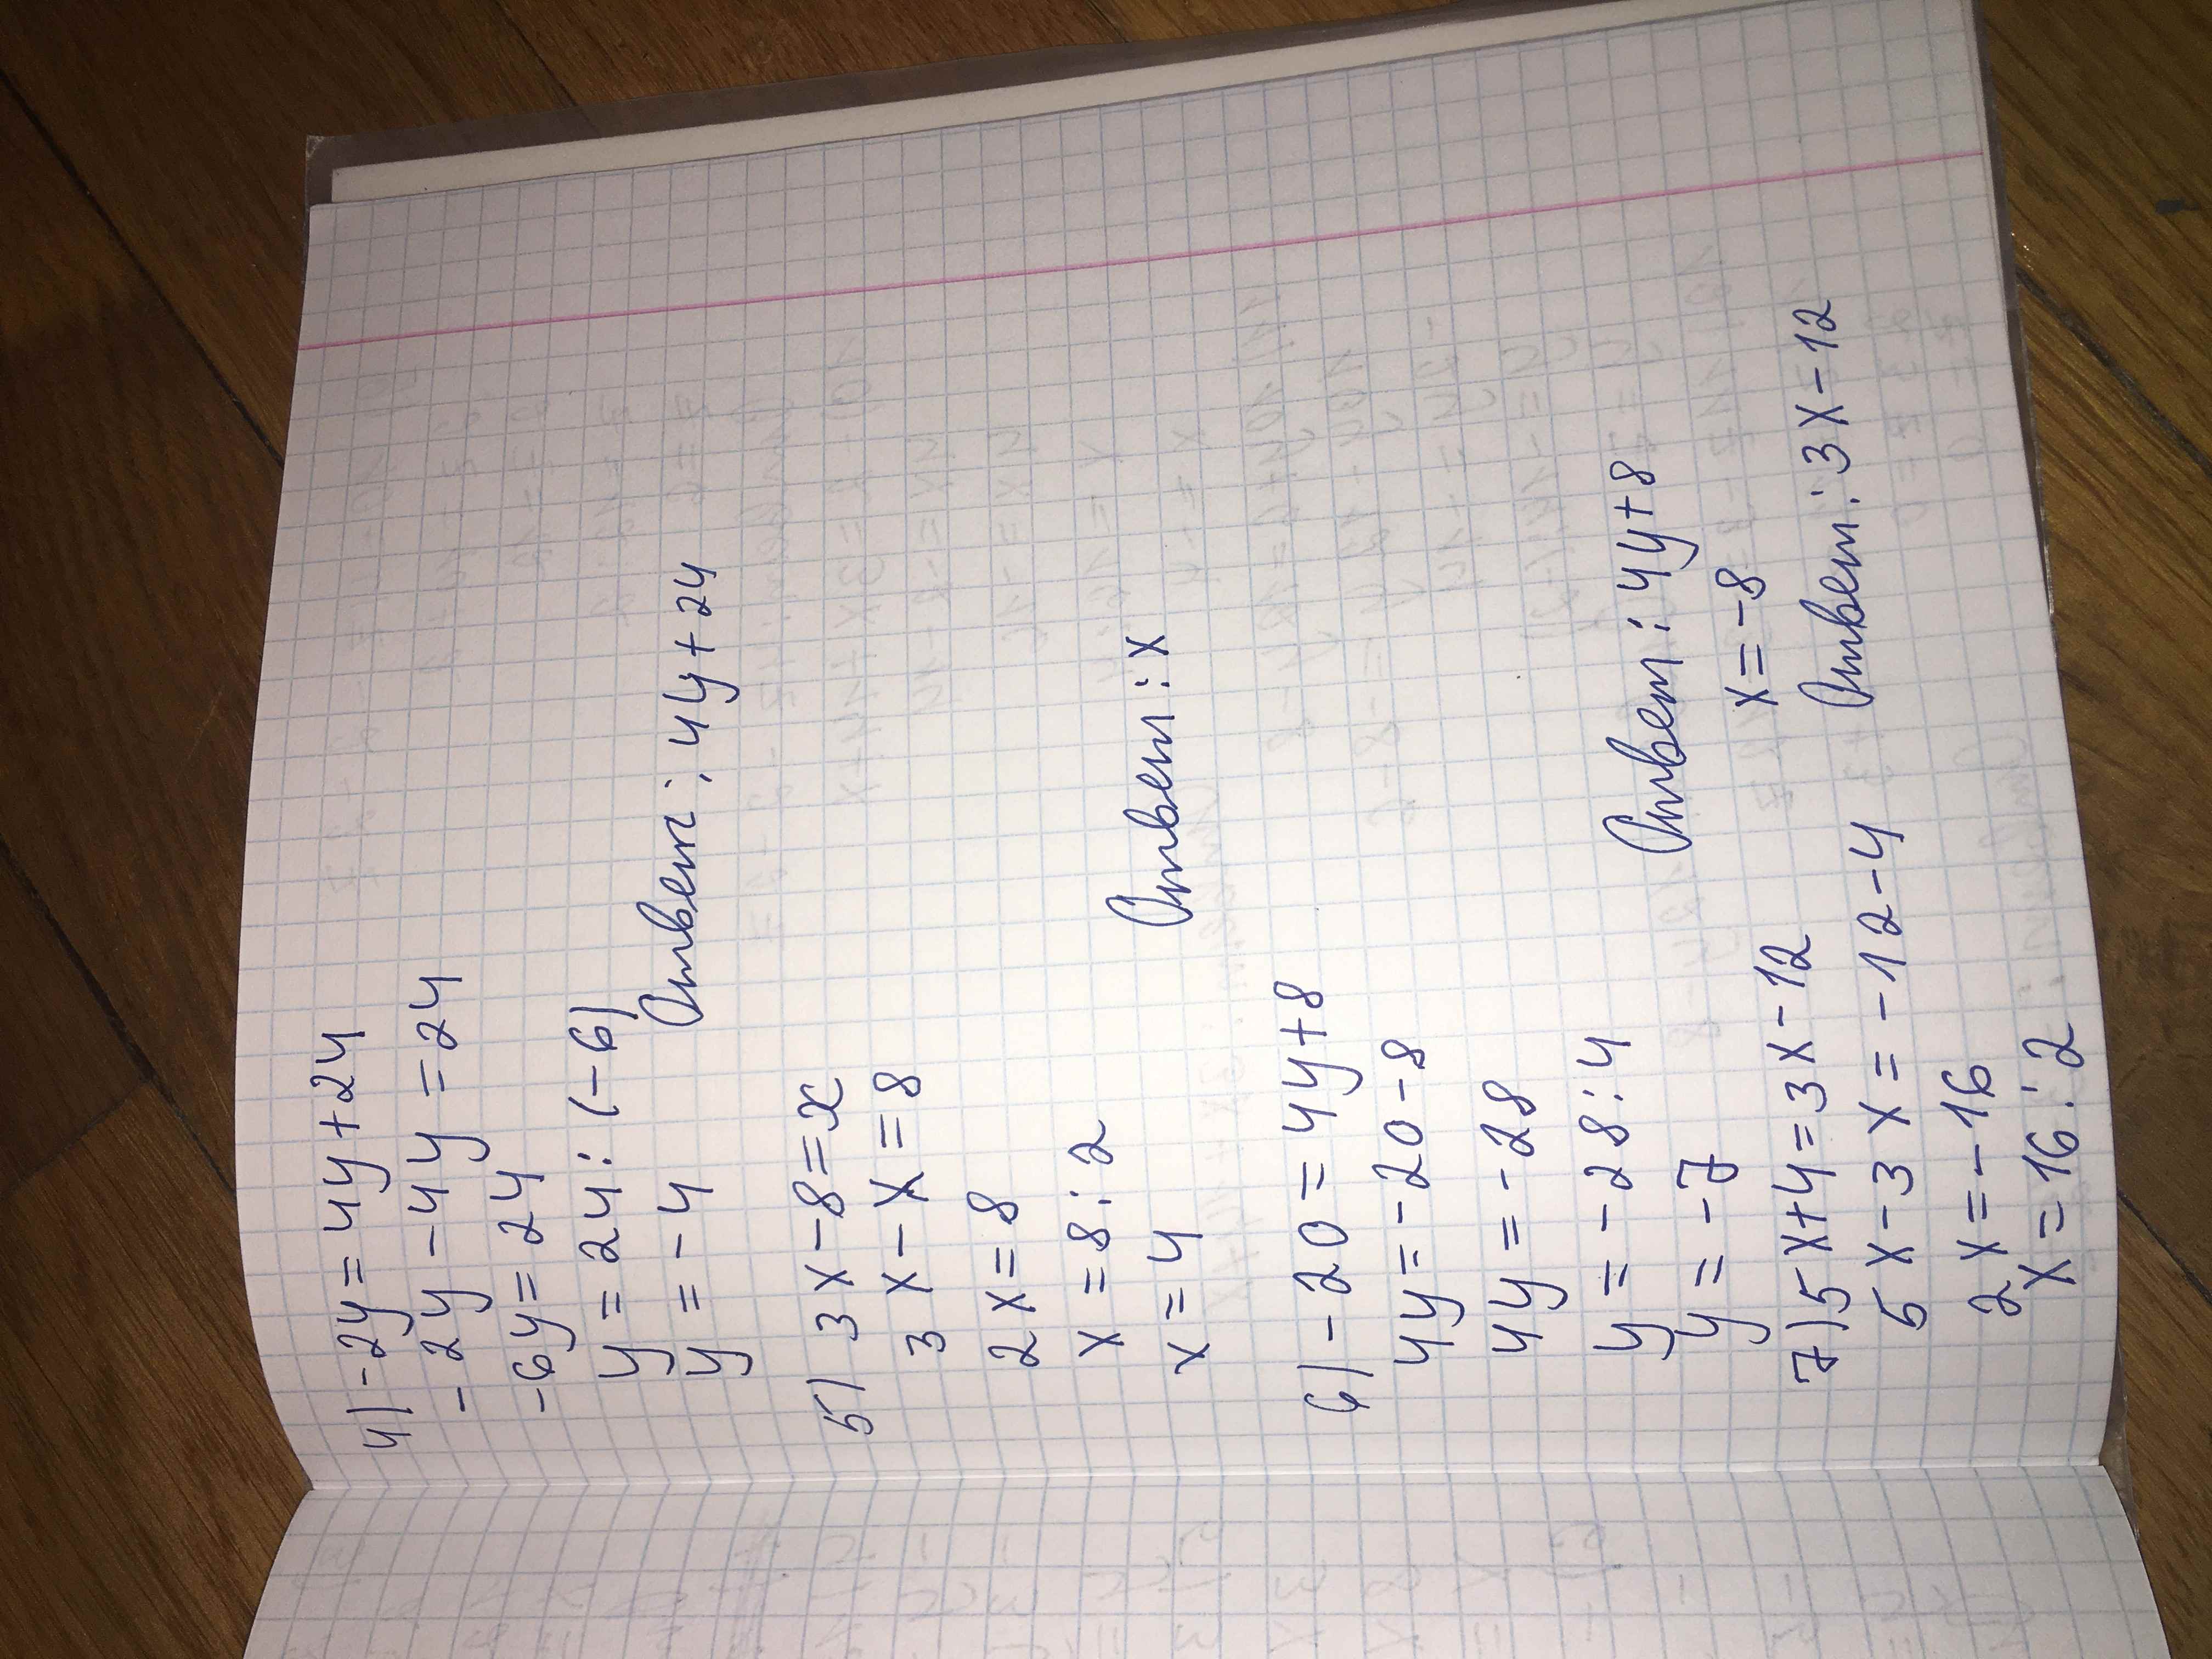 4) -2y=4y+24
-2y-4y=24
-6y=24
y=24:(-6)
y=-4
Ответ: 4y+24
5) 3x-8=x
3x-x=8
2x=8
x=8:2
x=4
Ответ: x
6) -20=4y+8
4y=-20-8
4y=-28
y=-28:4
y=-7
Ответ: 4y+8
7) 5x+4=3x-12
5x-3x=-12-4
2x=-16
x=-16:2
x=-8
Ответ: 3x-12